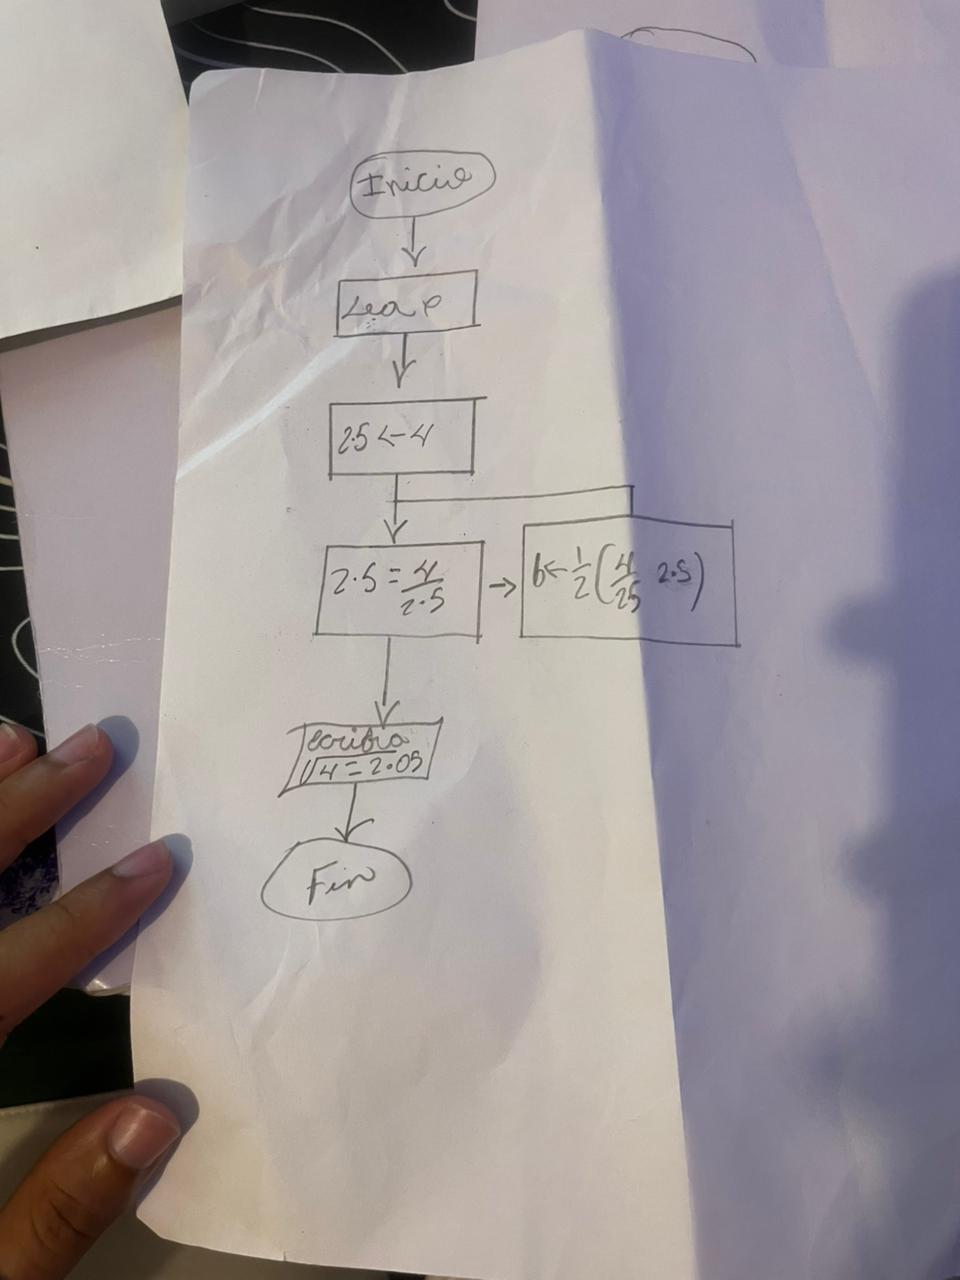 Inicio
Lea e
2.5 ← 4
2.5 = 4/2.5
b ← 1/2 (4/25 2.5)
escriba
√4 = 2.05
Fin